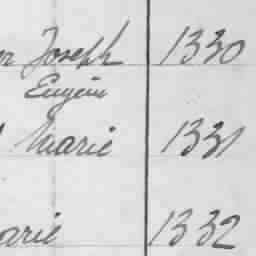 er Joseph 1330
Eugén
Marie 1331
arie 1332